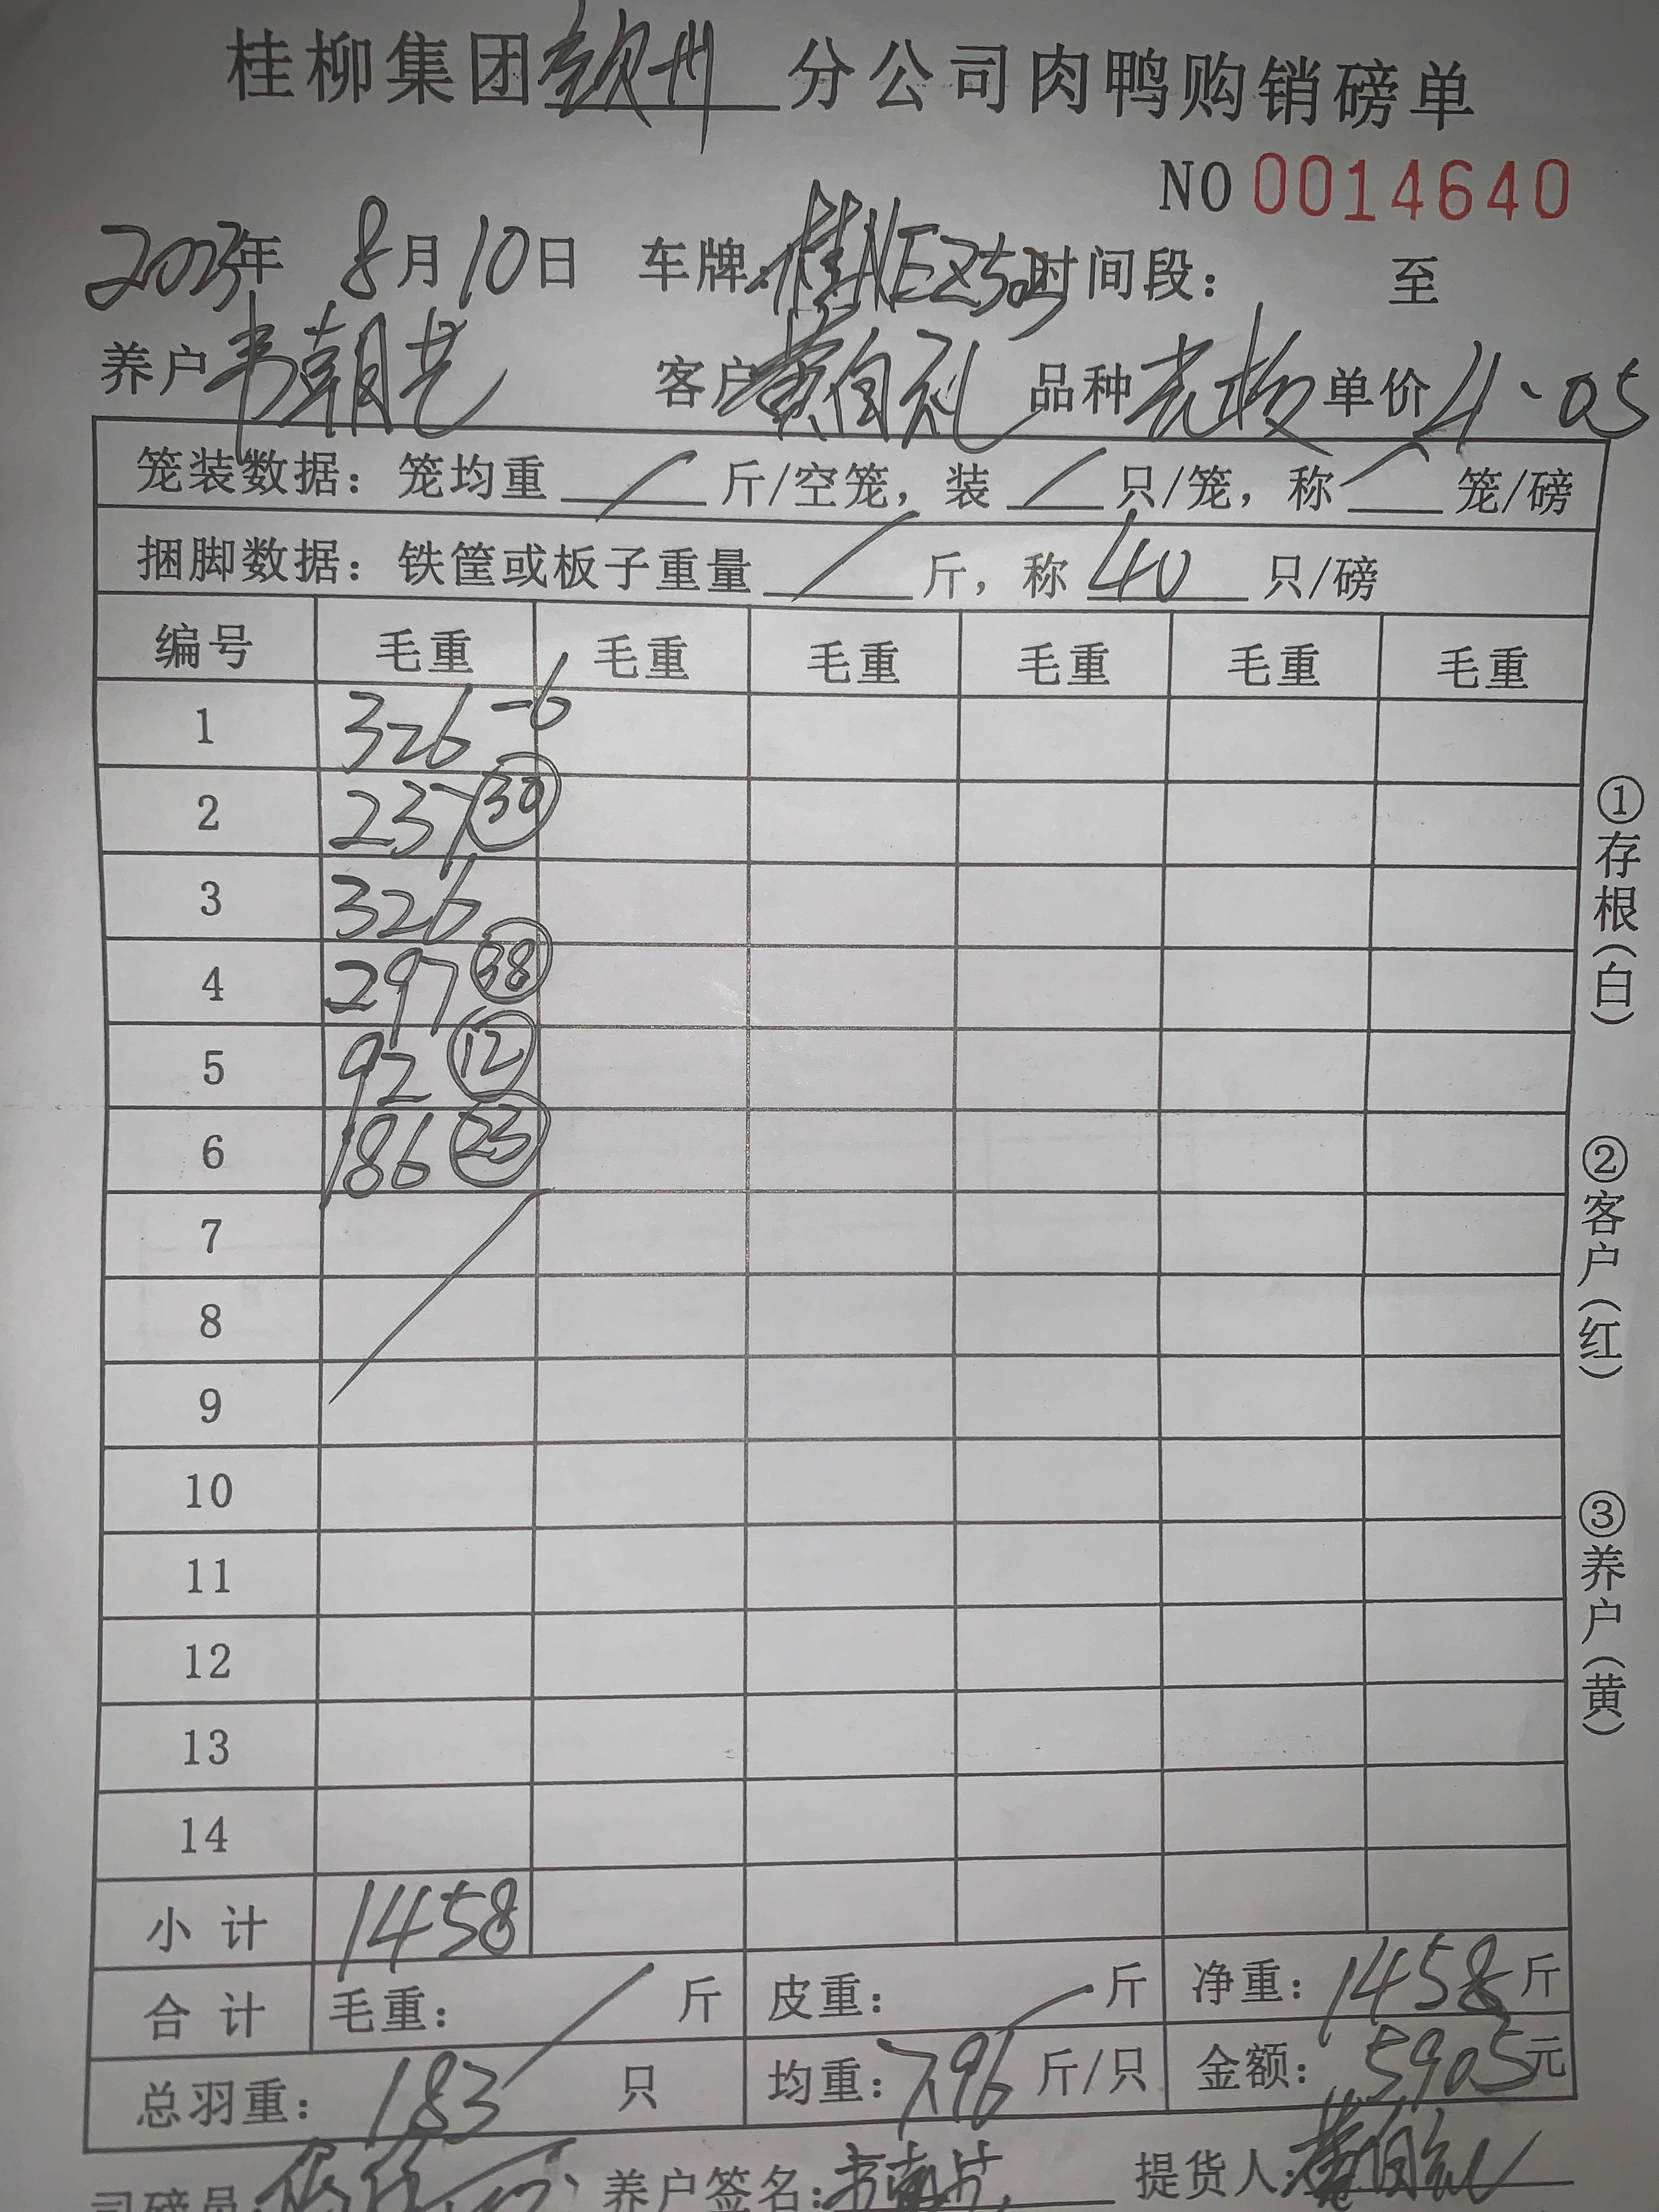 桂柳集团钦州分公司肉鸭购销磅单
NO 0014640
2023年 8月10日 车牌:桂NEZ50 时间段: 至
养户韦朝艺 客户黄自礼 品种 单价4.05
笼装数据:笼均重 / 斤/空笼,装 / 只/笼,称 / 笼/磅
捆脚数据:铁筐或板子重量 / 斤,称 40 只/磅
编号 毛重 毛重 毛重 毛重 毛重 毛重
1 326 -6
2 237 30
3 326
4 297 38
5 92 12
6 186 23
7
8
9
10
11
12
13
14
小计 1458
合计 毛重: / 斤 皮重: / 斤 净重:1458斤
总羽重: 183 只 均重:7.96 斤/只 金额:5905元
司磅员: 养户签名:韦朝艺 提货人:黄自礼
①存根(白)
②客户(红)
③养户(黄)